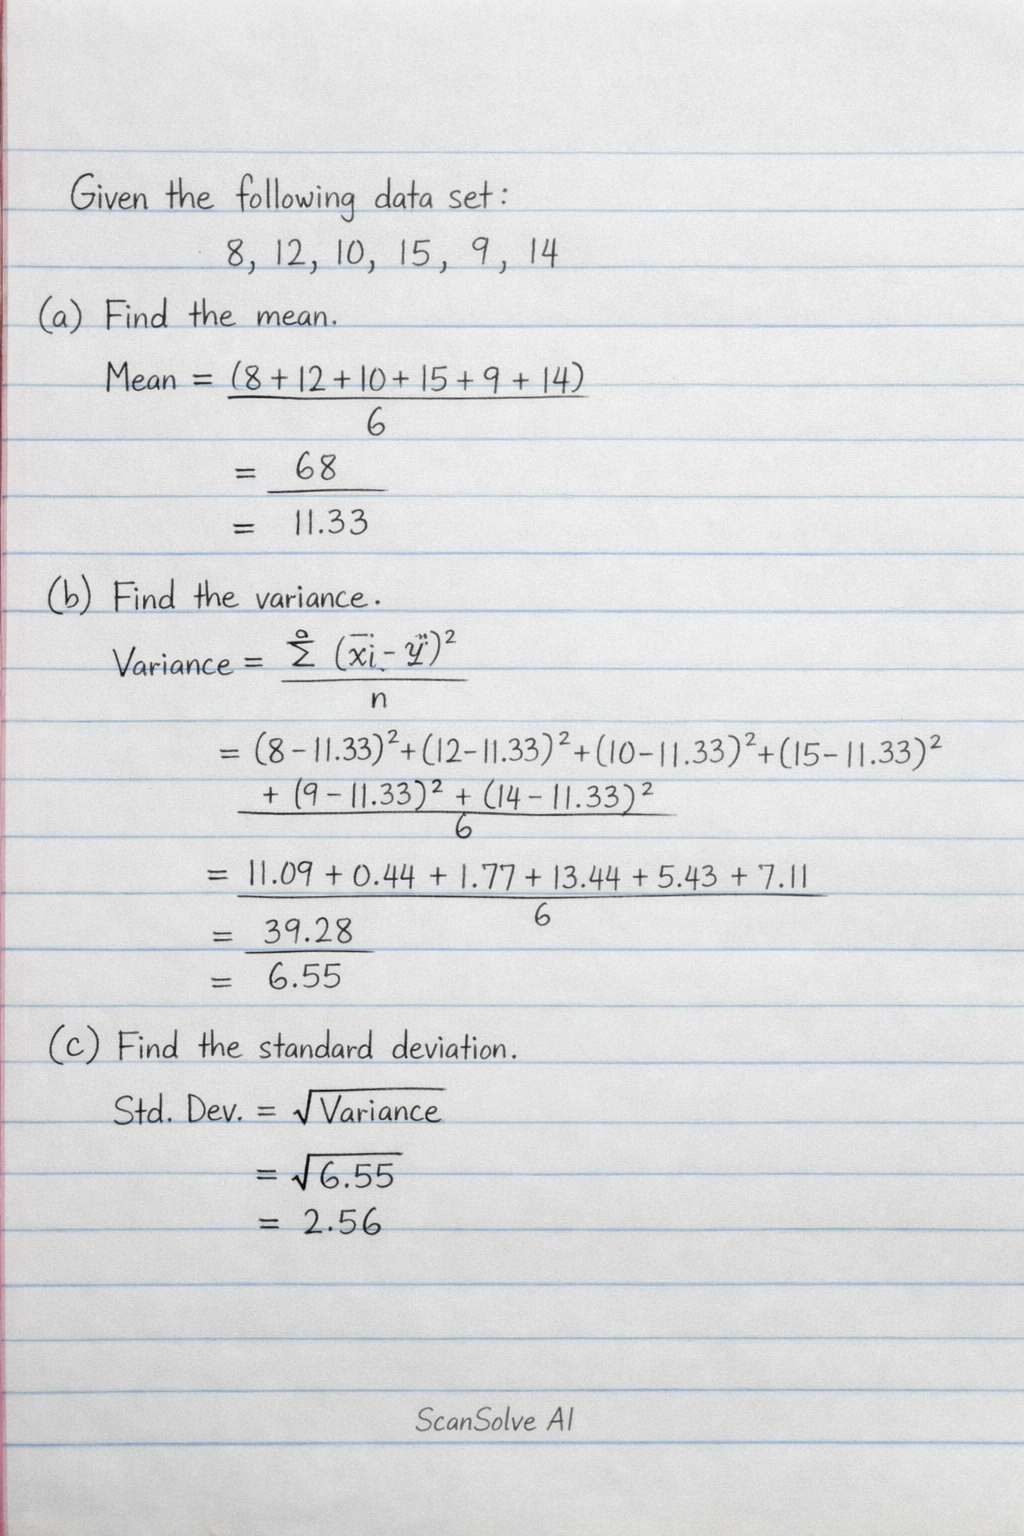 Given the following data set:
8, 12, 10, 15, 9, 14
(a) Find the mean.
Mean = (8+12+10+15+9+14)
6
= 68
= 11.33
(b) Find the variance.
Variance = Σ (x̄i - ȳ)²
n
= (8-11.33)²+(12-11.33)²+(10-11.33)²+(15-11.33)²
+ (9-11.33)² + (14-11.33)²
6
= 11.09 + 0.44 + 1.77 + 13.44 + 5.43 + 7.11
6
= 39.28
= 6.55
(c) Find the standard deviation.
Std. Dev. = √Variance
= √6.55
= 2.56
ScanSolve AI